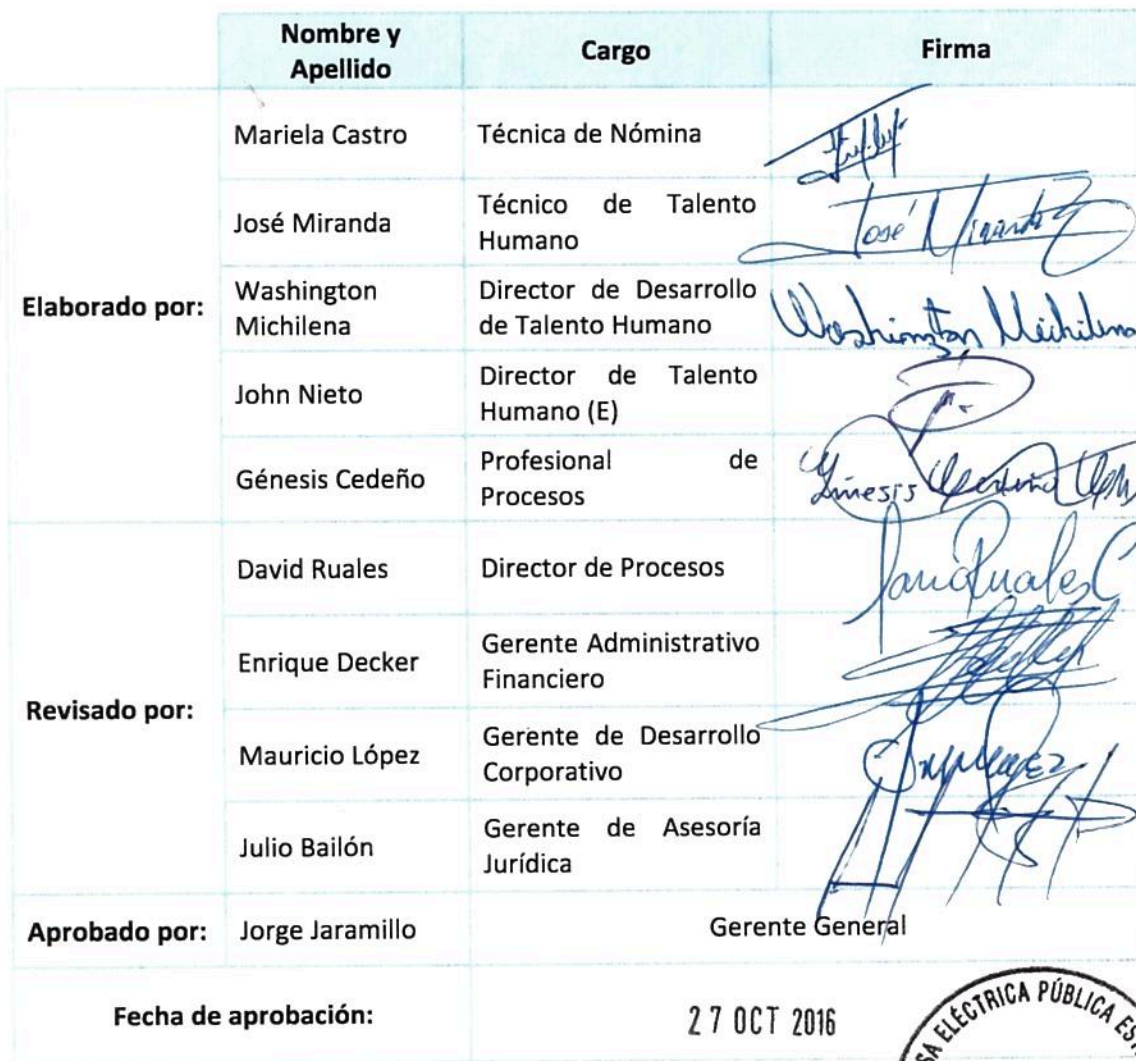 Nombre y
Apellido
Cargo
Firma
Elaborado por:
Mariela Castro
Técnica de Nómina
José Miranda
Técnico de Talento
Humano
José Miranda
Washington
Michilena
Director de Desarrollo
de Talento Humano
Washington Michilena
John Nieto
Director de Talento
Humano (E)
Génesis Cedeño
Profesional de
Procesos
Génesis Cedeño
Revisado por:
David Ruales
Director de Procesos
Enrique Decker
Gerente Administrativo
Financiero
Mauricio López
Gerente de Desarrollo
Corporativo
Julio Bailón
Gerente de Asesoría
Jurídica
Aprobado por:
Jorge Jaramillo
Gerente General
Fecha de aprobación:
27 OCT 2016
ELÉCTRICA PÚBLICA